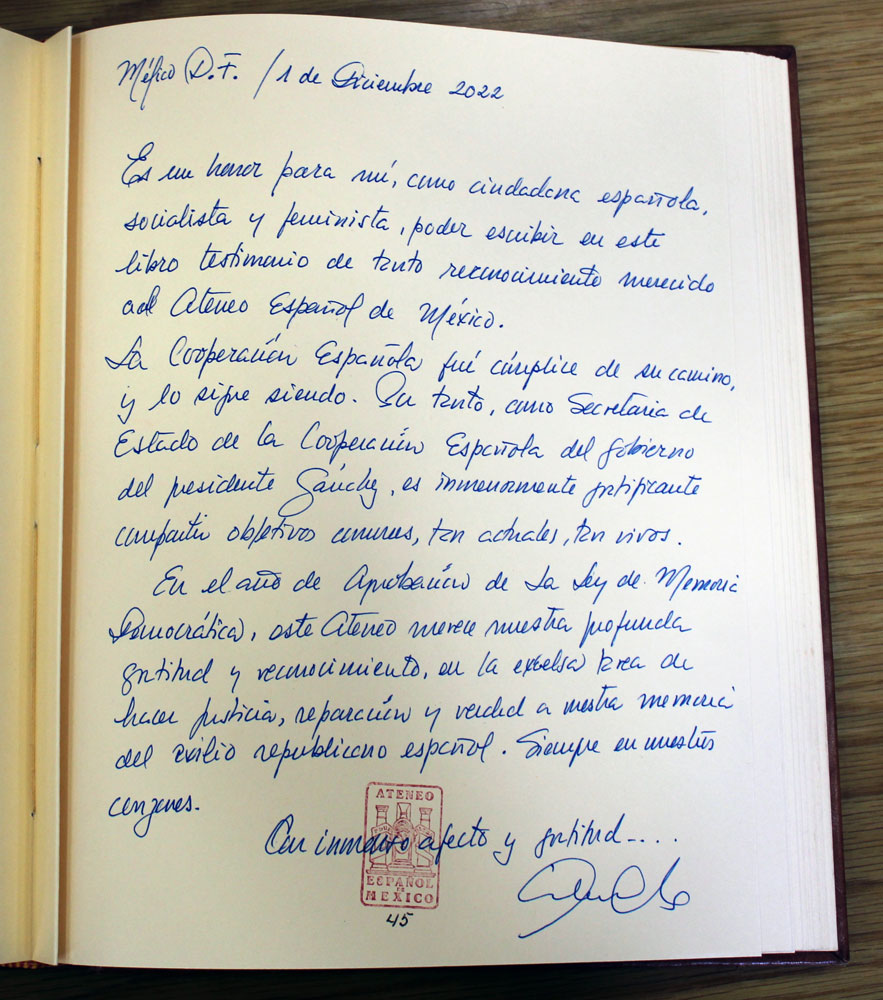 México D.F. / 1 de Diciembre 2022
Es un honor para mí, como ciudadana española,
socialista y feminista, poder escribir en este
libro testimonio de tanto reconocimiento merecido
al Ateneo Español de México.
La Cooperación Española fué cómplice de su camino,
y lo sigue siendo. Por tanto, como Secretaria de
Estado de la Cooperación Española del gobierno
del presidente Sánchez, es inmensamente gratificante
compartir objetivos comunes, tan actuales, tan vivos.
En el año de Aprobación de La Ley de Memoria
Democrática, este Ateneo merece nuestra profunda
gratitud y reconocimiento, en la excelsa tarea de
hacer justicia, reparación y verdad a nuestra memoria
del exilio republicano español. Siempre en nuestros
corazones.
Con inmenso afecto y gratitud....
ATENEO
ESPAÑOL
DE
MEXICO
45